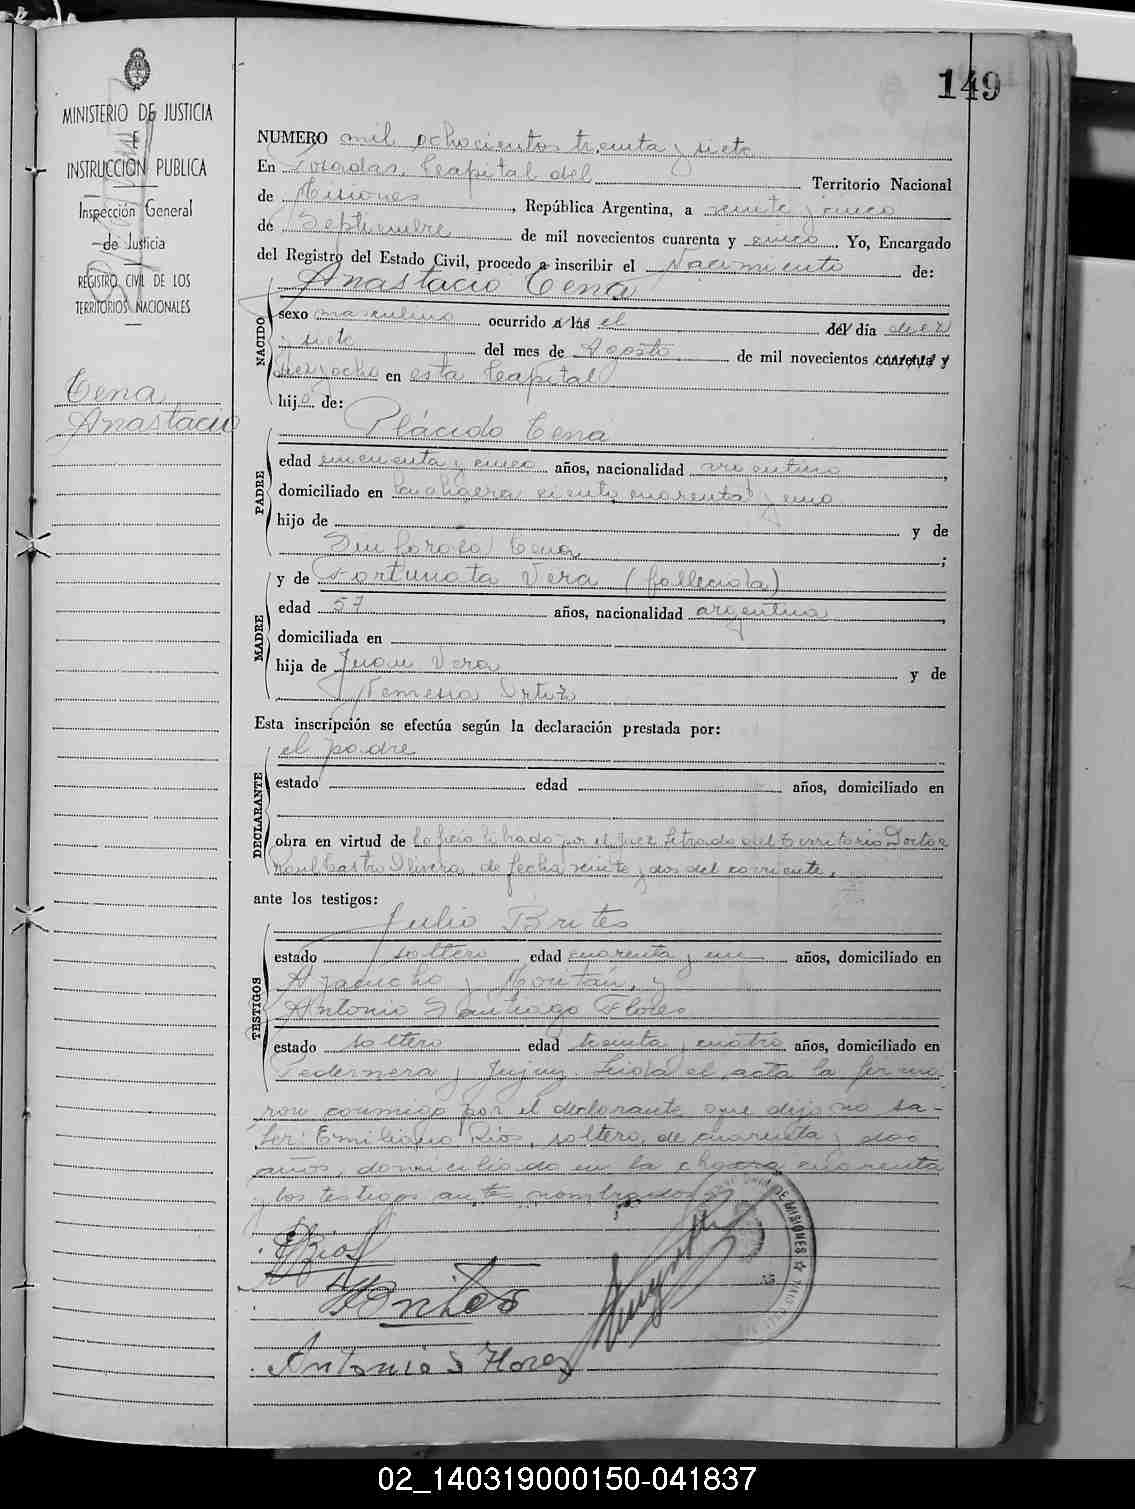 149
MINISTERIO DE JUSTICIA
E
INSTRUCCIÓN PUBLICA
Inspección General
de Justicia
REGISTRO CIVIL DE LOS
TERRITORIOS NACIONALES
Cena
Anastacio
NUMERO mil ochocientos treinta y siete
En Posadas, Capital del Territorio Nacional
de Misiones, República Argentina, a veinte y cinco
de Septiembre de mil novecientos cuarenta y cinco. Yo, Encargado
del Registro del Estado Civil, procedo a inscribir el Nacimiento de:
Anastacio Cena
NACIDO
sexo masculino ocurrido a las el del día diez
y siete del mes de Agosto de mil novecientos cuarenta y
diez y ocho en esta Capital
hijo de:
Plácido Cena
PADRE
edad cincuenta y cinco años, nacionalidad argentino,
domiciliado en la chacra ciento cuarenta y uno
hijo de y de
Sinforosa Cena;
MADRE
y de Fortunata Vera (fallecida)
edad 57 años, nacionalidad argentina,
domiciliada en
hija de Juan Vera y de
Nemesia Ortiz
Esta inscripción se efectúa según la declaración prestada por:
el padre
DECLARANTE
estado edad años, domiciliado en
obra en virtud de oficio librado por el Juez Letrado del Territorio Doctor
Raul Castro Olivera, de fecha veinte y dos del corriente,
ante los testigos:
Julio Brites
TESTIGOS
estado soltero edad cuarenta y un años, domiciliado en
Ayacucho y Moritán, y
Antonio Santiago Flores
estado soltero edad treinta y cuatro años, domiciliado en
Pedernera y Jujuy. Leida el acta la firma-
ron conmigo por el declarante que dijo no sa-
ber: Emiliano Rios, soltero, de cuarenta y dos
años, domiciliado en la chacra cuarenta
y los testigos antes nombrados
ERios
Brites
Antonio S Flores
DE MISIONES
02_140319000150-041837